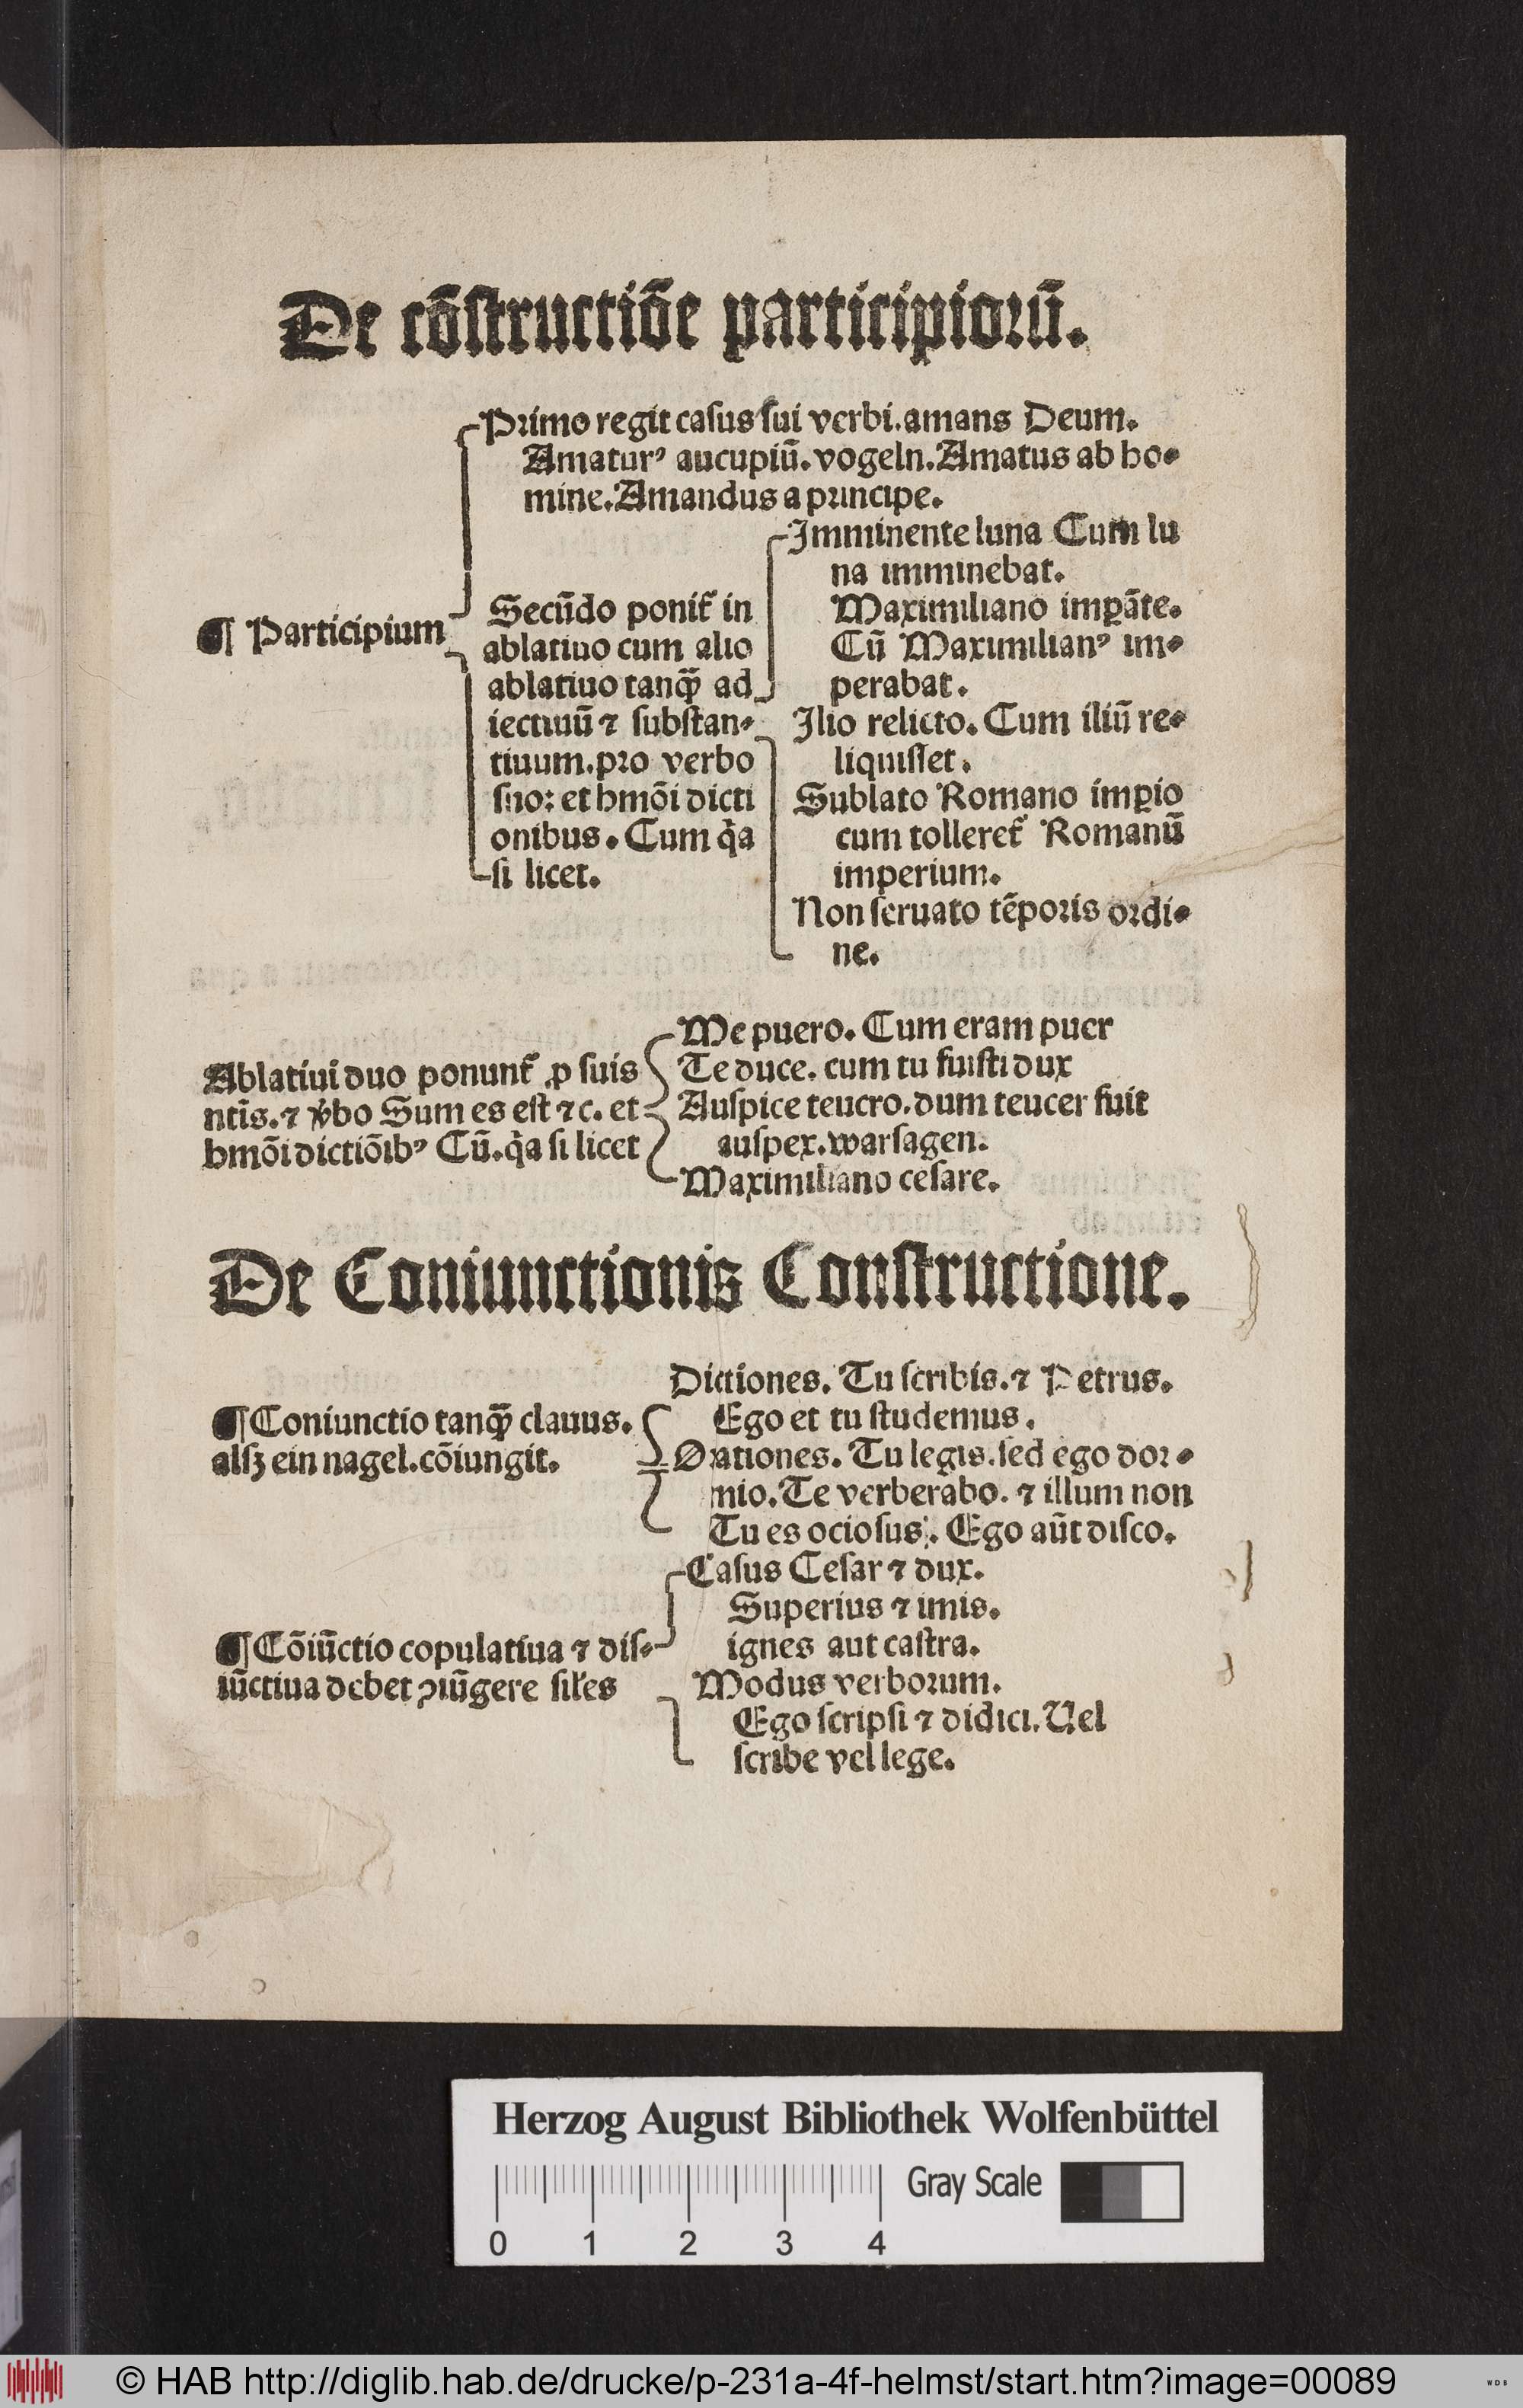 De cõstructiõe participiorũ.
Primo regit casus sui verbi. amans Deum.
Amaturꝰ aucupiũ. vogeln. Amatus ab ho⸗
mine. Amandus a principe.
¶ Participium
Secũdo ponit̃ in
ablatiuo cum alio
ablatiuo tanqȝ̃ ad
iectiuũ ⁊ substan⸗
tiuum. pro verbo
suo: et hmõi dicti
onibus. Cum q̃a
si licet.
Imminente luna Cum lu
na imminebat.
Maximiliano imꝑãte.
Cũ Maximilianꝰ im⸗
perabat.
Ilio relicto. Cum iliũ re⸗
liquisset.
Sublato Romano imꝑio
cum tolleret̃ Romanũ
imperium.
Non seruato tẽporis ordi⸗
ne.
Ablatiui duo ponunt̃ ꝓ suis
ntĩs. ⁊ ṽbo Sum es est ⁊c. et
hmõi dictiõibꝰ Cũ. q̃a si licet
Me puero. Cum eram puer
Te duce. cum tu fuisti dux
Auspice teucro. dum teucer fuit
auspex. warsagen.
Maximiliano cesare.
De Coniunctionis Constructione.
¶ Coniunctio tanqȝ̃ clauus.
alsȝ ein nagel. cõiungit.
Dictiones. Tu scribis. ⁊ Petrus.
Ego et tu studemus.
Orationes. Tu legis. sed ego dor⸗
mio. Te verberabo. ⁊ illum non
Tu es ociosus. Ego aũt disco.
¶ Cõiũctio copulatiua ⁊ dis⸗
iũctiua debet ꝯiũgere sil̃es
Casus Cesar ⁊ dux.
Superius ⁊ imis.
ignes aut castra.
Modus verborum.
Ego scripsi ⁊ didici. Uel
scribe vel lege.
Herzog August Bibliothek Wolfenbüttel
Gray Scale
0 1 2 3 4
© HAB http://diglib.hab.de/drucke/p-231a-4f-helmst/start.htm?image=00089
WDB